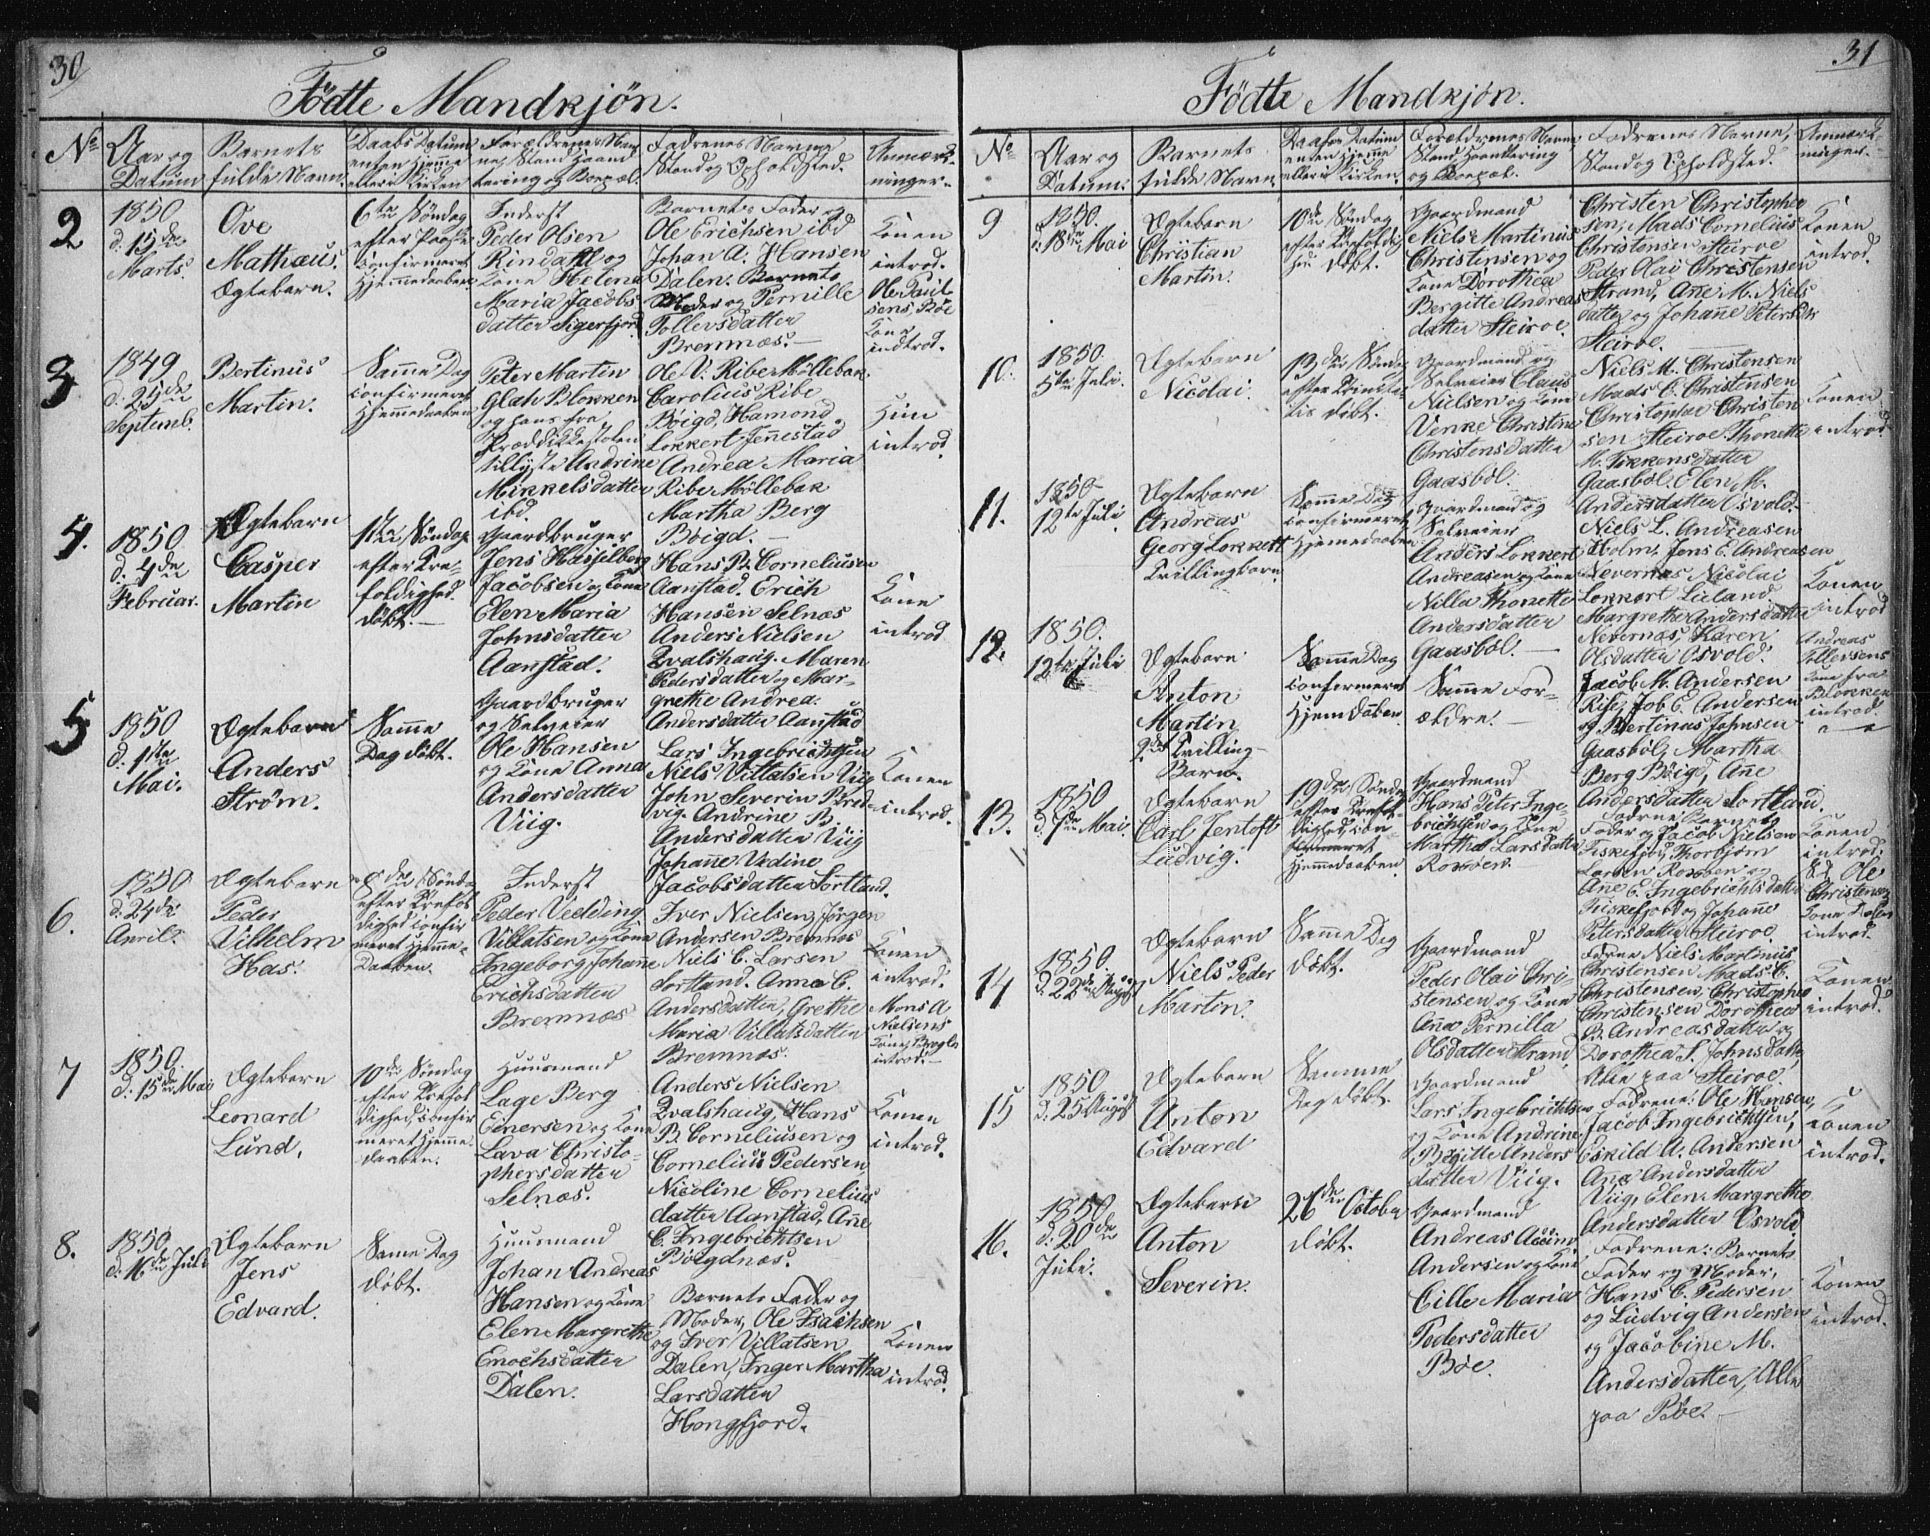 30
Födte Mandkjön.
No
Aar og Datum
Barnets fulde Navn.
Daabs Datum enten hjemme eller i Kirken
Forældrenes Navne, Stand, Haandtering og Boepæl.
Fadrenes Navne Stand og Opholdsted.
Anmærkninger.
2
1850
d. 15de
Marts.
Ove
Mathæus.
Ægtebarn.
6te Söndag
efter Paaske
confirmeret
Hjemmedaaben
Inderst
Peder Olsen
Rindahl og
Kone Helena
Maria Jacobs
datter Sigerfjord
Barnets Fader og
Ole Erichsen ibd
Johan A. Hansen
Dalen. Barnets
Moder og Pernille
Tollevsdatter
Bremnæs.
Konen
introd.
Ole Paul
sens, Böe
Kone
indtrod.
3
1849
d. 25de
Septemb.
Bertinus
Martin.
Samme Dag
confirmeret
Hjemmedaaben
Peter Martin
Glah Blokken
og hans fra
Prædikestolen
tillyste Andrine
Mikkelsdatter
ibd.
Ole V. Ribe Möllebak
Carolius Ribe
Böigd, Hamond
Lokkert Jennestad
Andrea Maria
Ribe Möllebak
Martha Berg
Böigd.
Hun
introd.
4.
1850
d. 4de
Februar.
Ægtebarn
Casper
Martin
1ste Söndag
efter Tre-
foldighed.
döbt.
Gaardbruger
Jens Hasselberg
Jacobsen og Kone
Elen Maria
Johnsdatter
Aanstad.
Hans B. Corneliusen
Aanstad. Erich
Hansen Selnæs
Anders Nielsen
Qvalshaug. Maren
Pedersdatter og Mar-
grethe Andrea
Andersdatter Aanstad
Kone
introd
5
1850
d. 1ste
Mai.
Ægtebarn
Anders
Ström.
Samme
Dag döbt.
Gaardbruger
og Selveier
Ole Hansen
og Kone Anna
Andersdatter
Viig.
Lars Ingebrichtsen
Niels Villatsen Viig
John Severin Bred
vig. Andrine B.
Andersdatter Viig
Johanne Vedine
Jacobsdatter Sortland.
Konen
introd.
6.
1850
d. 24de
April.
Ægtebarn
Peder
Vilhelm
Has.
8de Sönda
efter Trefol
dighed confir
meret Hjemme-
Daaben.
Inderst
Peder Vedding
Villatsen og Kone
Ingeborg Johane
Erichsdatter
Bremnæs
Iver Nielsen, Jörgen
Andersen Bremnæs
Niels C. Larsen
Sortland. Anna C.
Andersdatter, Grethe
Maria Villatsdatter
Bremnæs.
Konen
introd.
Mons A
Nielsens
Kone, Brogle
introd.
7
1850.
d. 15de Mai
Ægtebarn
Leonard
Lund.
10de Söndag
efter Trefol
dighed, confir
meret Hjemme-
daaben.
Huusmand
Lage Berg
Einersen og Kone
Lava Christo-
phersdatter
Selnæs.
Anders Nielsen
Qvalshaug, Hans
B. Corneliusen og
Cornelius Pedersen
Nicoline Cornelius
datter Aanstad, Ane
C. Ingebrichtsen
Böigdnæs.
Konen
introd.
8.
1850.
d. 16de Juli
Ægtebarn
Jens
Edvard.
Same Dag
döbt.
Huusmand
Johan Andreas
Hansen og Kone
Elen Margrethe
Enochsdatter
Dalen.
Barnets Fader og
Moder, Ole Isachsen
og Iver Villatsen
Dalen, Inger Martha
Larsdatter
Hongfjord.
Konen
introd.
31
Födte Mandkjön.
No
Aar og Datum.
Barnets fulde Navn
Daabs Datum enten hjemme eller i Kirken.
Forældrenes Navne Stand, Haantering og Boepæl.
Fadrenes Navne, Stand og Opholdsted.
Anmærkninger.
9
1850.
d. 18de Mai
Ægtebarn
Christian
Martin.
10de Söndag
döbt.
Gaardmand
Niels Martinus
Christensen og
Kone Dorothea
Bergitte Andreas
datter Steiroe.
Christen Christopher
sen, Mads Cornelius
Christensen Steiroe
Peder Olai Christensen
Strand, Ane M. Niels
datter og Johanne Petersdtr
Steiroe.
Konen
introd.
10.
1850.
5te Juli.
Ægtebarn
Nicolai.
13de Sönda
efter Trinita-
tis döbt.
Gaardmand og
Selveier Claus
Nielsen og Kone
Venke Christine
Christensdatter
Gaasböl.
Niels M. Christensen
Mads C. Christensen
Christopher Christen
sen Steiroe. Thonette
M. Tikkensdatter
Gaasböl, Elen M.
Andersdatter Osvold.
Konen
introd
11.
1850
12te Juli
Ægtebarn
Andreas
Georg Lokkert
Tvillingbarn
Samme Dag
confirmeret
Hjemedaaben
Gaardmand og
Selveier
Anders Lokkert
Andreasen og Kone
Nilla Thonette
Andersdatter
Gaasböl.
Niels L. Andreasen
Holm, Jens C. Andreasen
Nevernæs Nicolai
Lokkert Lieland
Margrethe Andersdatter
Nevernæs, Karen
Olsdatter Osvold.
Konen
introd
Andreas
Tollevsens
Kone fra
Blokken
introd.
12.
1850.
12te Juli
Ægtebarn
Anton
Martin
2det Tvilling-
Barn.
Samme Dag
confirmeret
Hjemdaben
Samme For-
ældre.
Jacob M. Andersen
Rise, Job E. Andersen
og Bertinus Johnsen
Gaasböl, Martha
Berg Böigd, Ane
Andersdatter Sortland.
13.
1850
d. 7de Mai.
Ægtebarn
Carl Jentoft
Ludvig.
19de Sönda
efter Trefol-
dighed, con-
firmeret
Hjemmedaaben
Gaardmand
Hans Peter Inge-
brichtsen og Kone
Martha Larsdatter
Roksöen
Fadrne Barnets
Fader og Jacob Nielsen
Fiskefjord, Thorbjörn
Larsen Roksöen og
Ane E. Ingebrichtsdatter
Fiskefjord og Johanne
Petersdatter Steiroe.
Konen
introd.
Ole
Christensens
Kone Dalen
introd.
14
1850.
d. 22de August
Ægtebarn
Niels Peder
Marton.
Samme Dag
döbt.
Gaardmand
Peder Olai Chri-
stensen og Kone
Ane Pernilla
Olsdatter Strand
Fadrne Niels Martinus
Christensen Mads C.
Christensen, Christopher
Christensen Dorothea
B. Andreasdatter og
Dorothea S. Johnsdatter
Alle paa Steiroe.
Konen
introd.
15
1850
d. 25 August
Ægtebarn
Anton
Edvard
Samme
Dag döbt.
Gaardmand
Lars Ingebrichtsen
og Kone Andrine
Birgitte Anders
datter Viig.
Fadrene: Ole Hansen,
Jacob Ingebrichtsen,
Eskild A. Andersen
Ane Andersdatter
Viig, Elen Margrethe
Andersdatter Osvold
Konen
introd.
16.
1850.
d. 20de
Juli.
Ægtebarn
Anton
Severin.
26de October
döbt.
Gaardmand
Andreas
Andersen og Kone
Cille Maria
Pedersdatter
Böe.
Fadrene: Barnets
Fader og Moder,
Hans C. Pedersen
og Ludvig Andersen
og Jacobine M.
Andersdatter, Alle
paa Böe.
Konen
introd.